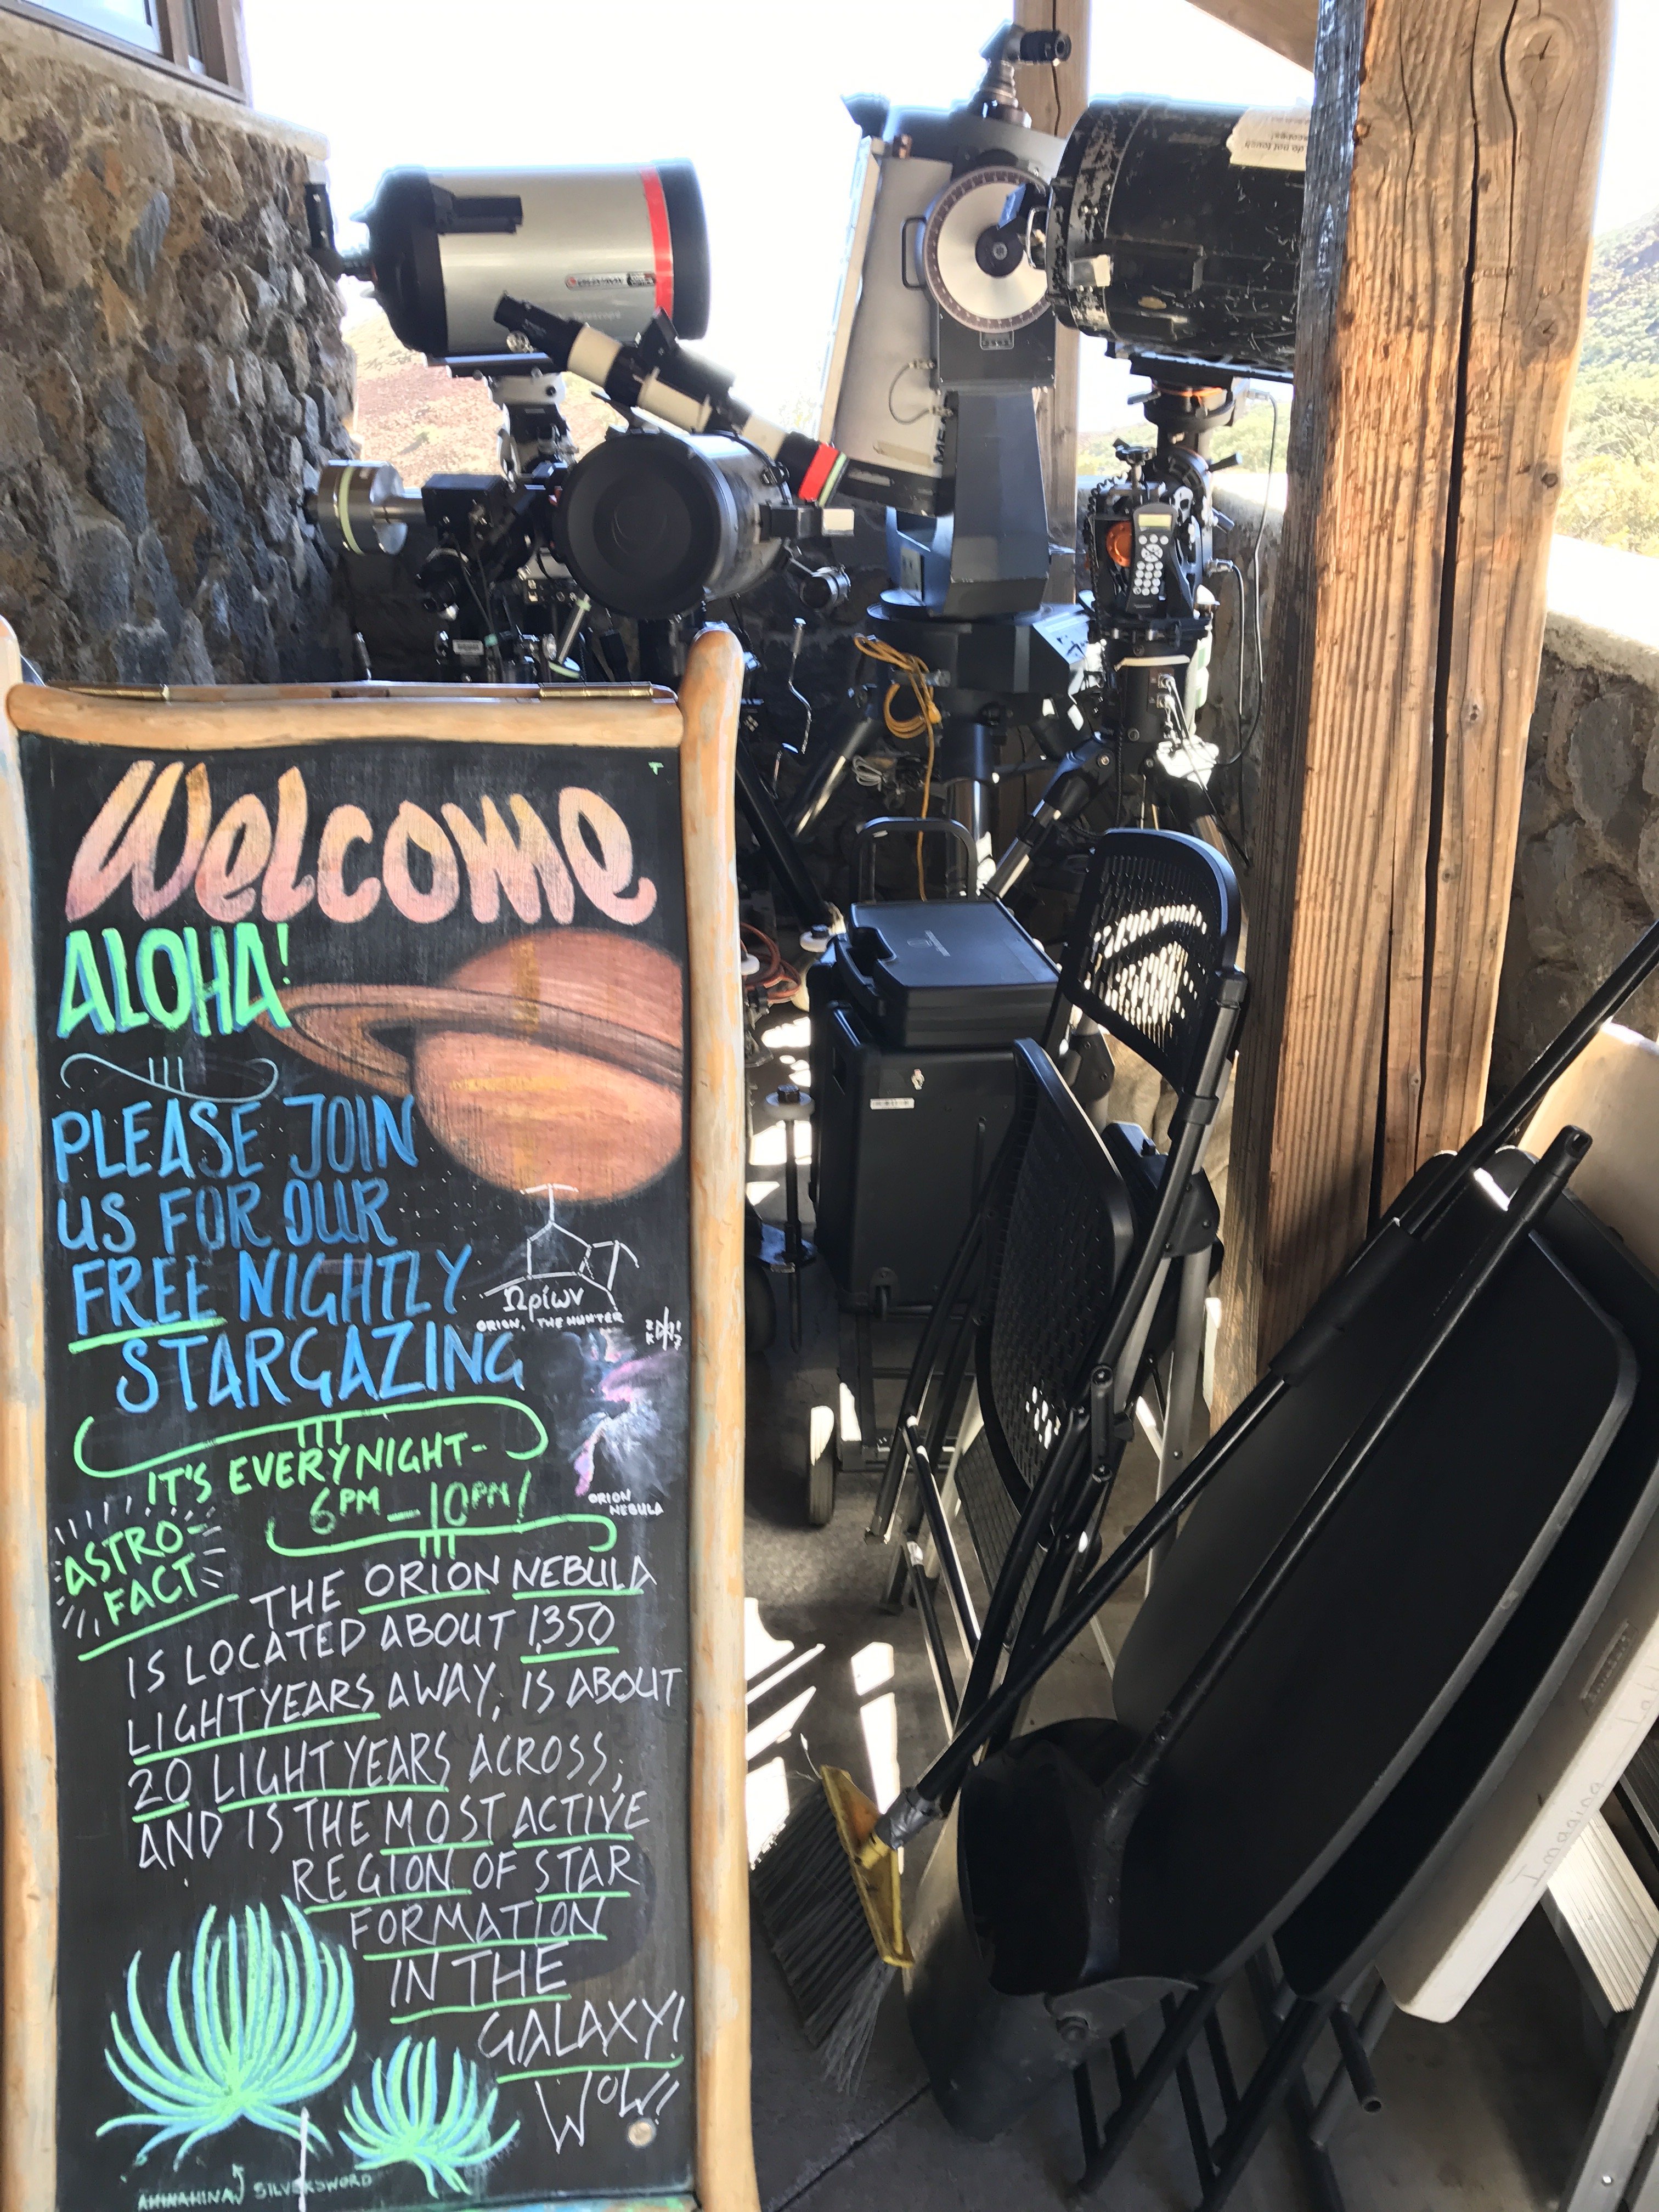 do not touch
Telescope
MEA
WELCOME
ALOHA!
PLEASE JOIN
US FOR OUR
FREE NIGHTLY
STARGAZING
Ωρίων
ORION, THE HUNTER
ORION
NEBULA
IT'S EVERY NIGHT-
6PM — 10PM!
ASTRO-
FACT
THE ORION NEBULA
IS LOCATED ABOUT 1,350
LIGHTYEARS AWAY, IS ABOUT
20 LIGHTYEARS ACROSS,
AND IS THE MOST ACTIVE
REGION OF STAR
FORMATION
IN THE
GALAXY!
WOW!!
AHINAHINA SILVERSWORD
Imagina